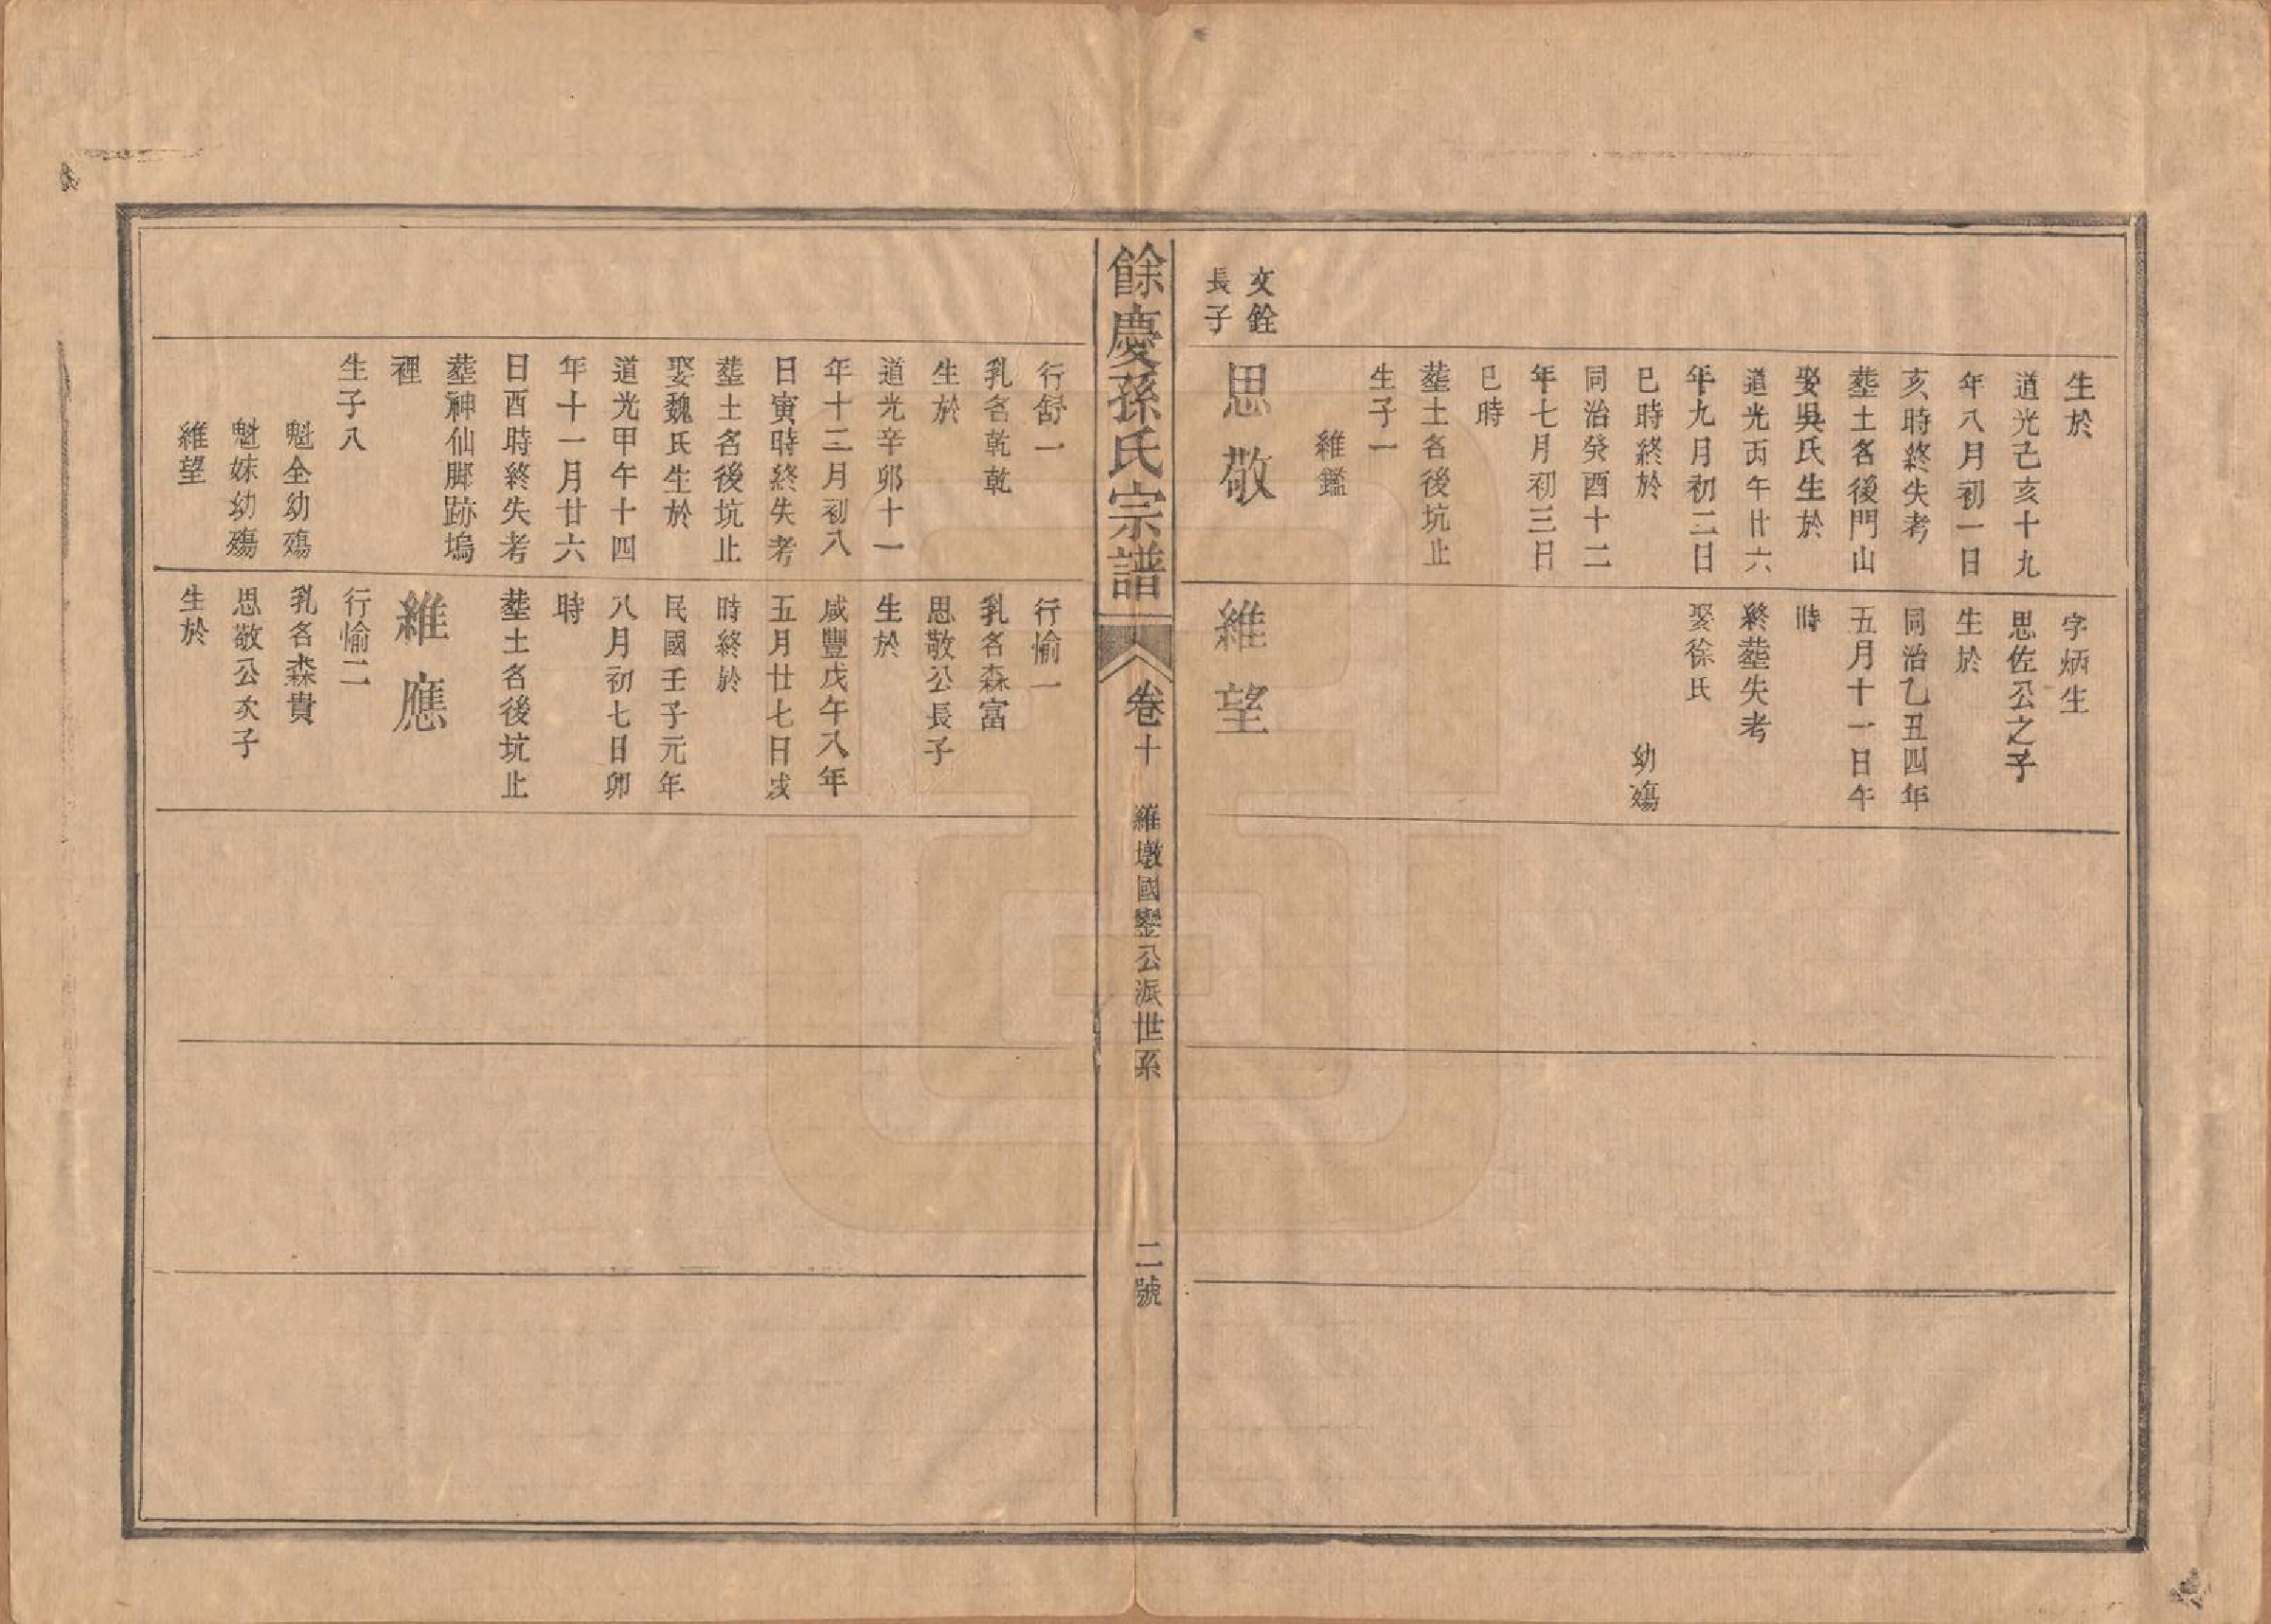 生於
道光己亥十九
年八月初一日
亥時終失考
塟土名後門山
娶吳氏生於
道光丙午廿六
年九月初二日
巳時終於
同治癸酉十二
年七月初三日
巳時
塟土名後坑止
生子一
維鑑
文銓
長子
思敬
字炳生
思佐公之子
生於
同治乙丑四年
五月十一日午
時
終塟失考
娶徐氏
幼殤
維望
餘慶孫氏宗譜
卷十
羅墩國鋆公派世系
二號
行舒一
乳名乾乾
生於
道光辛卯十一
年十二月初八
日寅時終失考
塟土名後坑止
娶魏氏生於
道光甲午十四
年十一月廿六
日酉時終失考
塟神仙脚跡塢
裡
生子八
魁全幼殤
魁妹幼殤
維望
行愉一
乳名森富
思敬公長子
生於
咸豐戊午八年
五月廿七日戌
時終於
民國壬子元年
八月初七日卯
時
塟土名後坑止
維應
行愉二
乳名森貴
思敬公次子
生於